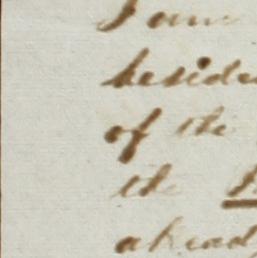 I am
besides
of the
the
already